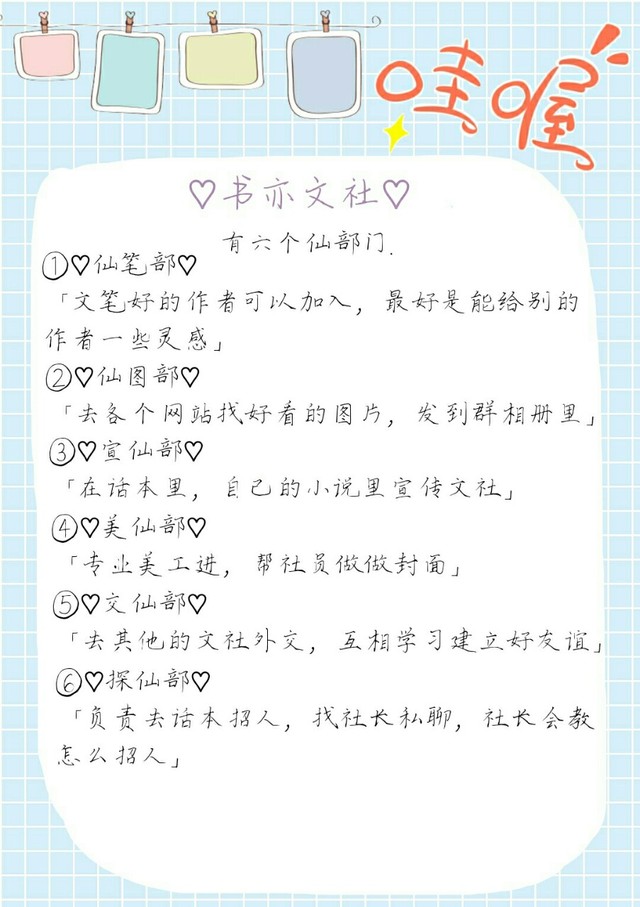 哇喔
♡书亦文社♡
有六个仙部门.
①♡仙笔部♡
「文笔好的作者可以加入，最好是能给别的
作者一些灵感」
②♡仙图部♡
「去各个网站找好看的图片，发到群相册里」
③♡宣仙部♡
「在话本里，自己的小说里宣传文社」
④♡美仙部♡
「专业美工进，帮社员做做封面」
⑤♡交仙部♡
「去其他的文社外交，互相学习建立好友谊」
⑥♡探仙部♡
「负责去话本招人，找社长私聊，社长会教
怎么招人」